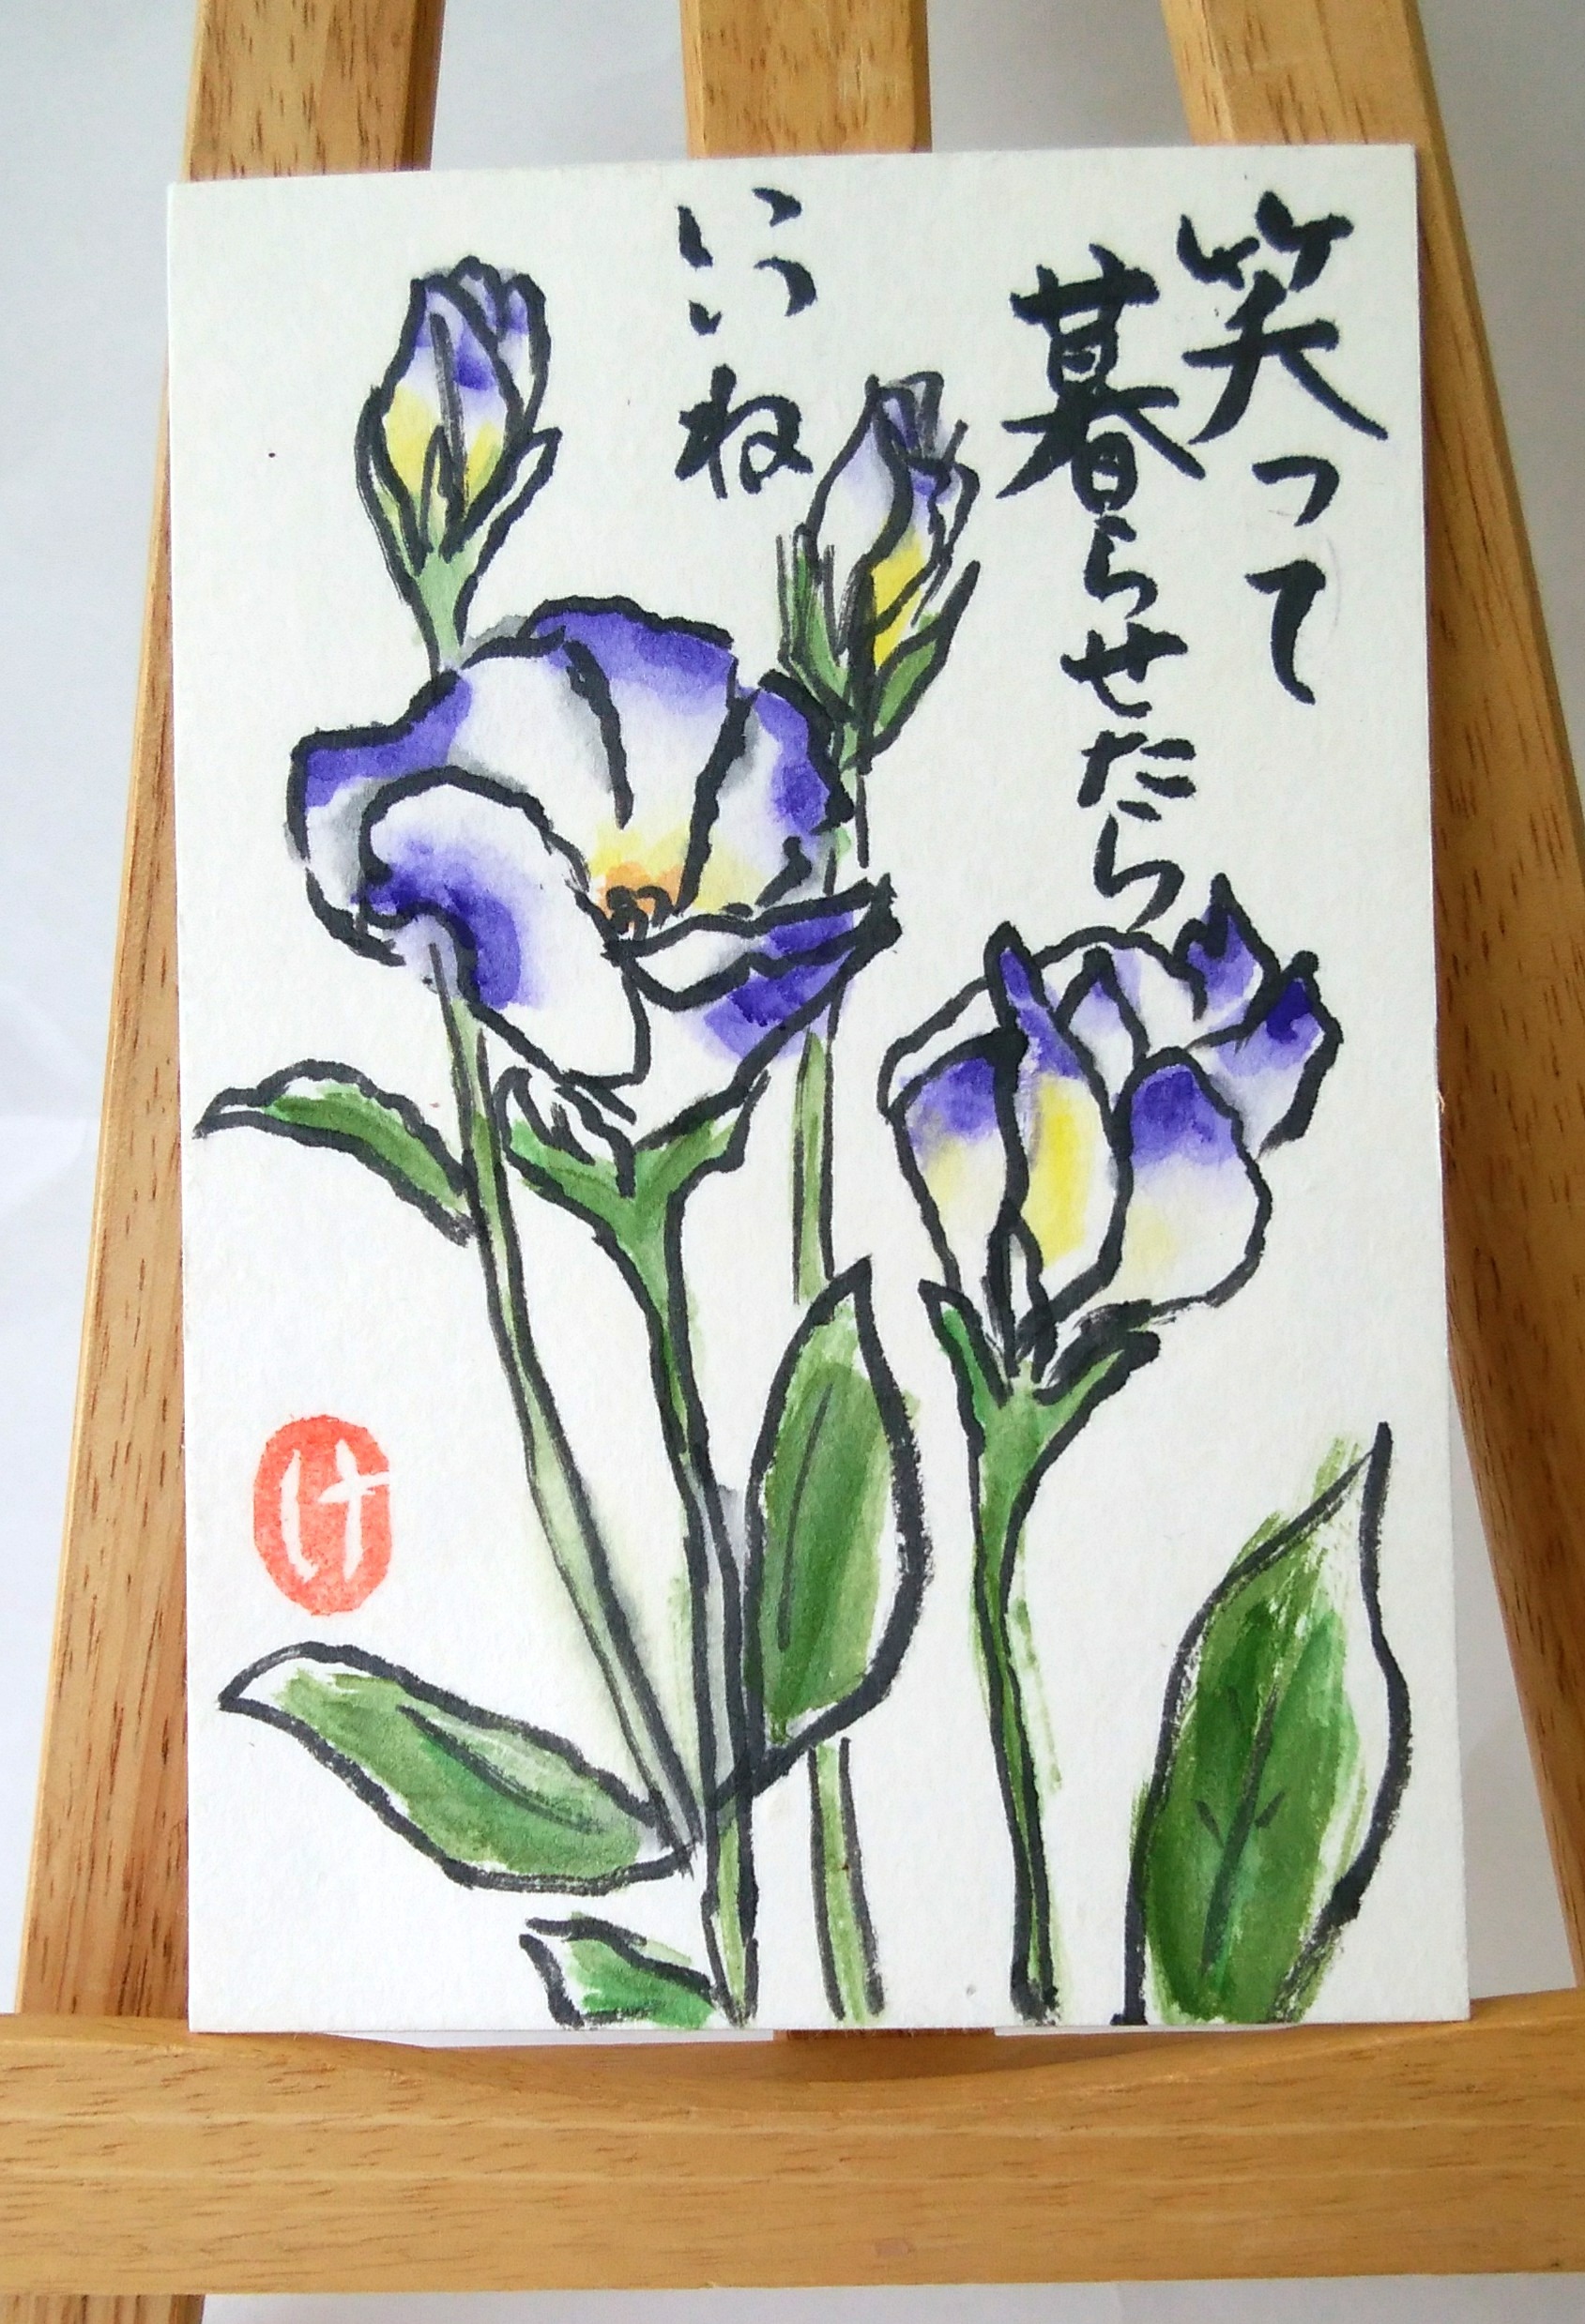 笑って
暮らせたら
いいね
け